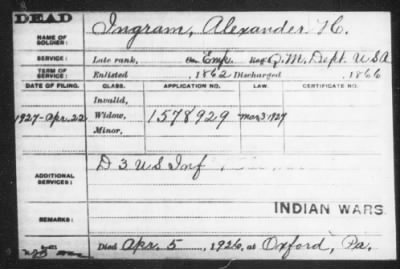 DEAD
NAME OF SOLDIER: Ingram, Alexander H.
SERVICE: Late rank, Emp. Reg't Q.M. Dept. U S A
TERM OF SERVICE: Enlisted , 1862 Discharged , 1866
DATE OF FILING. CLASS. APPLICATION NO. LAW. CERTIFICATE NO.
Invalid,
1927-Apr. 22 Widow, 1578929 Mar 3 1927
Minor,
ADDITIONAL SERVICES: D 3 U S Inf
INDIAN WARS
REMARKS:
Died Apr. 5, 1926, at Oxford, Pa.